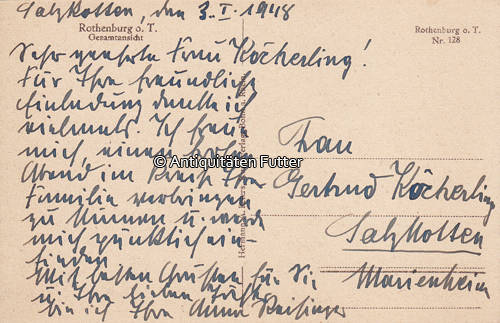 Salzkotten, den 3. I. 1948
Rothenburg o. T.
Gesamtansicht
Rothenburg o. T.
Nr. 128
Sehr geehrte Frau Köcherling!
Für Ihre freundliche
Einladung danke ich
vielmals. Ich freue
mich, einen
Abend im Kreis Ihrer
Familie verbringen
zu können u. werde
mich pünktlich ein-
finden
Mit besten Grüßen für Sie
u. Ihre lieben
bin ich Ihre Anna Reisinger
© Antiquitäten Futter
Frau
Gertrud Köcherling
Salzkotten
Marienheim